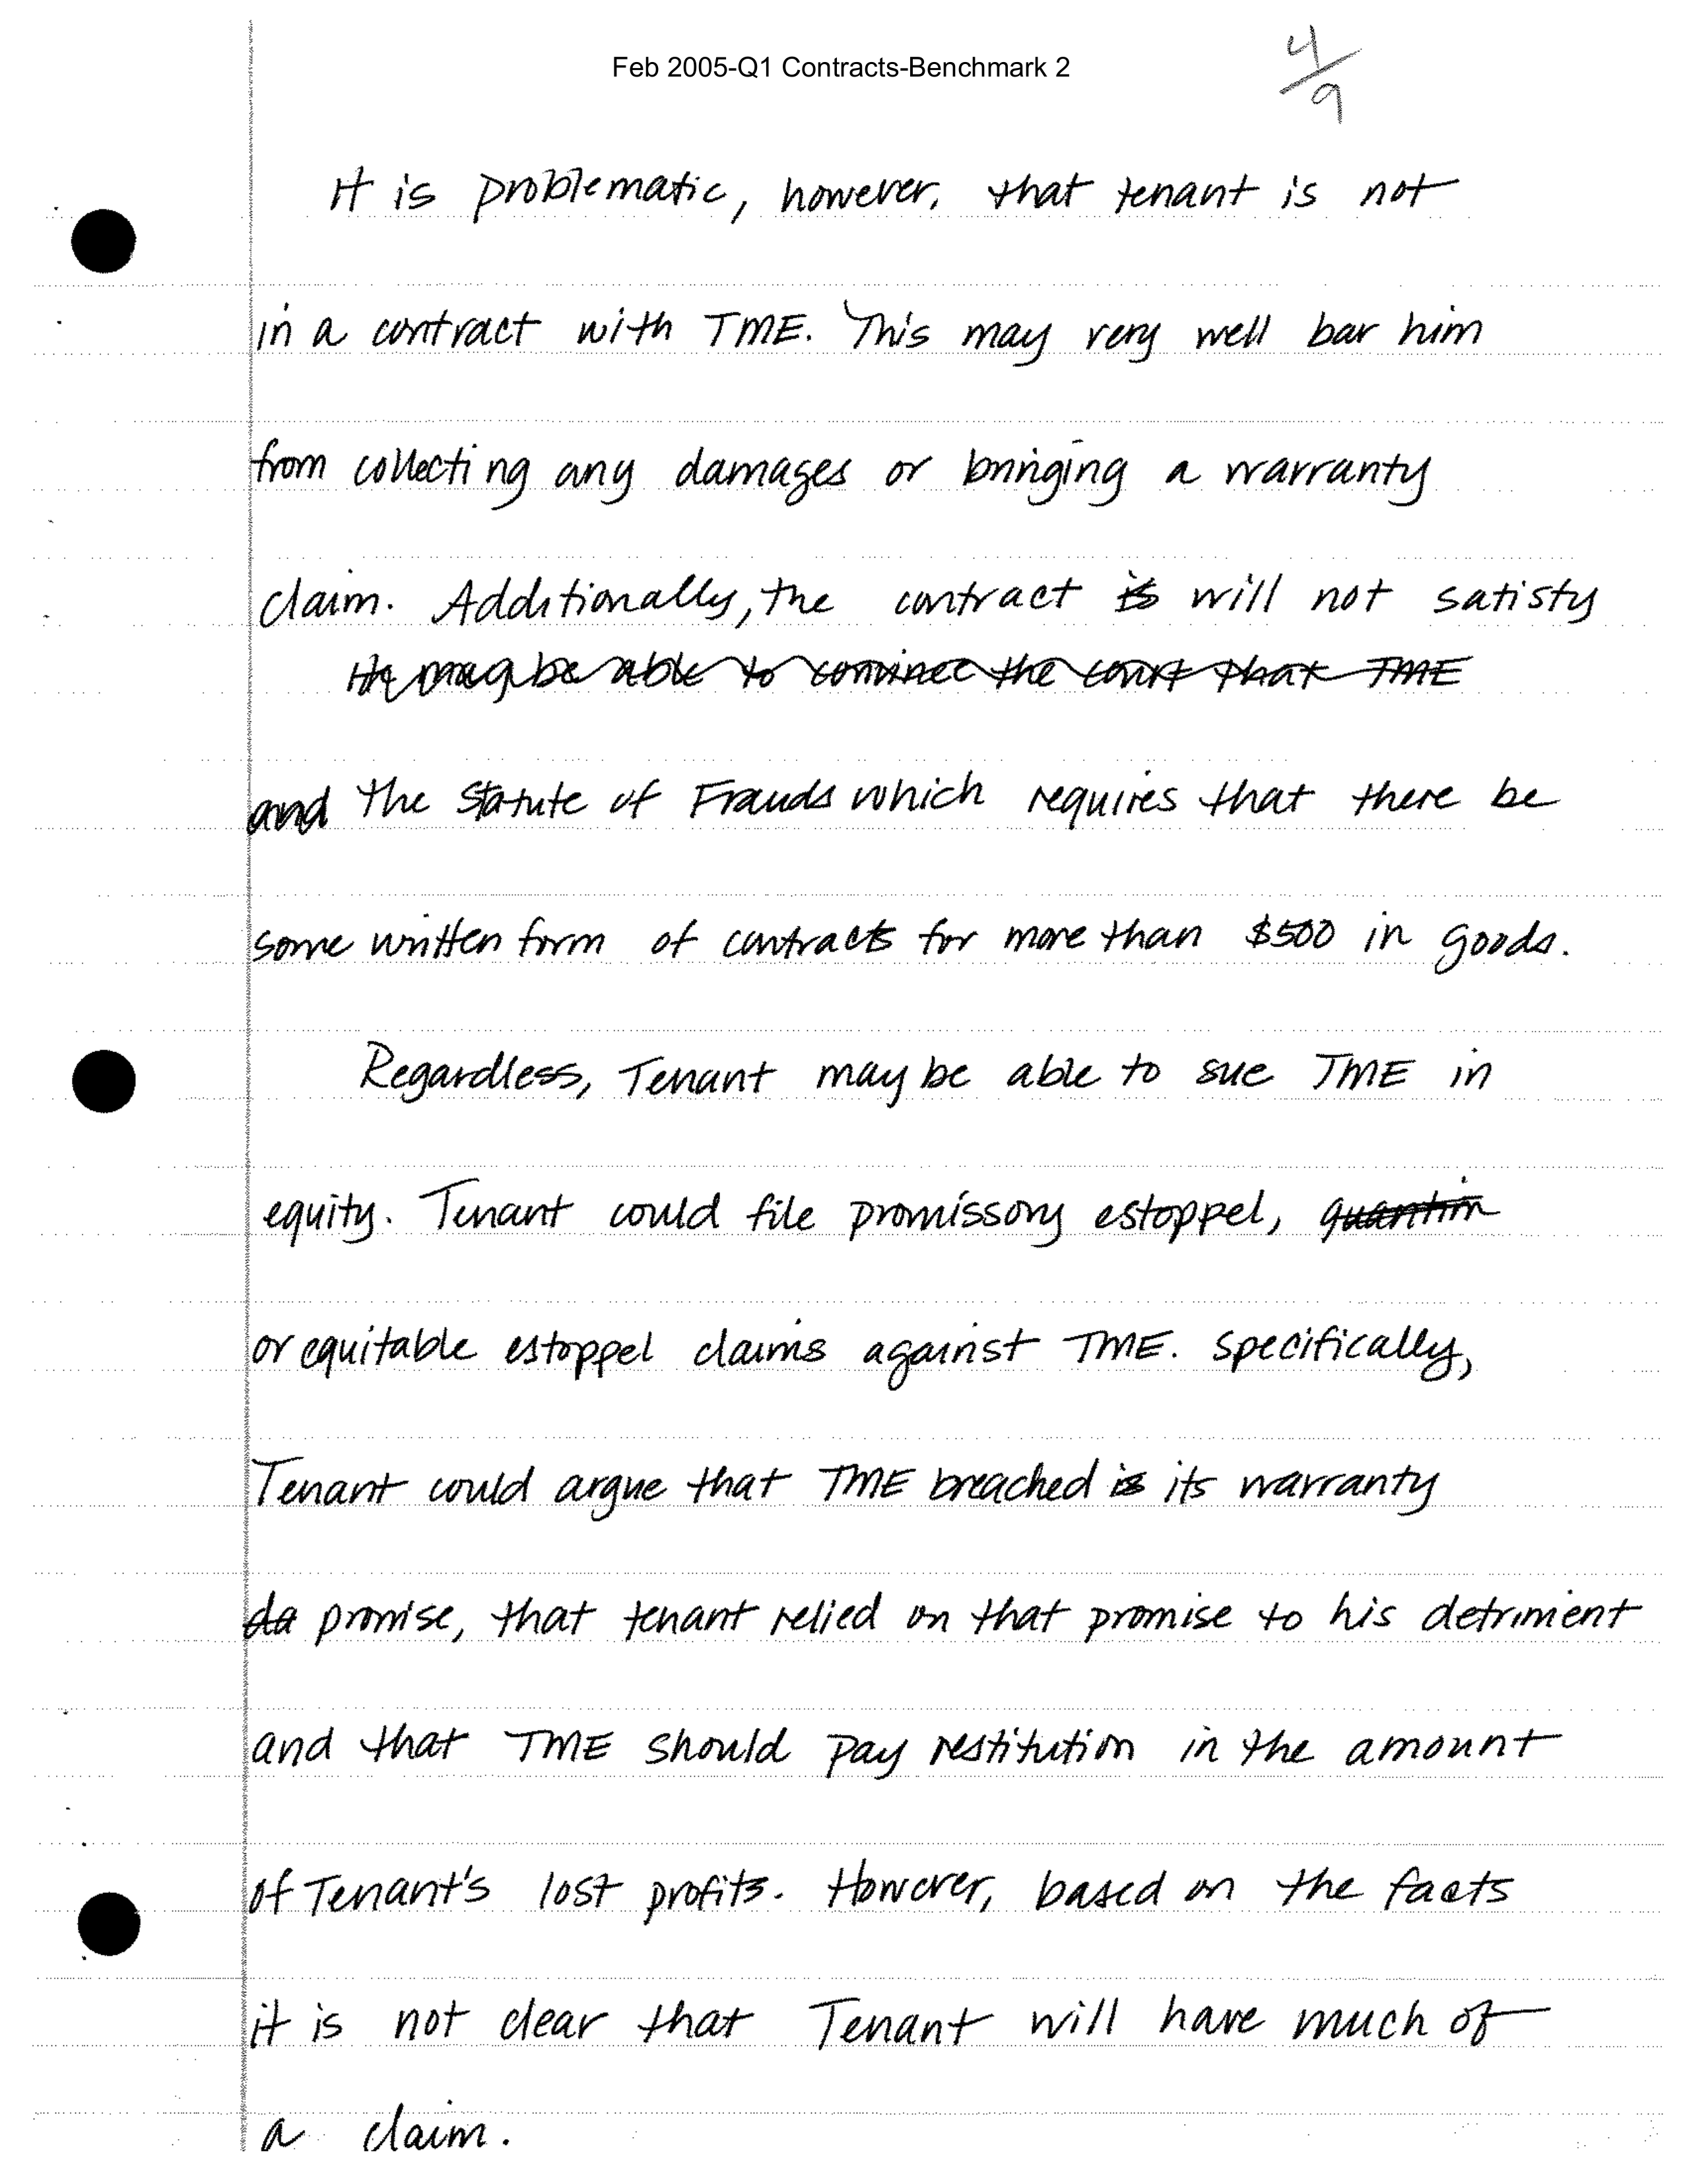 Feb 2005-Q1 Contracts-Benchmark 2
4/9
It is problematic, however, that tenant is not
in a contract with TME. This may very well bar him
from collecting any damages or bringing a warranty
claim. Additionally, the contract is will not satisfy
He may be able to convince the court that TME
and the Statute of Frauds which requires that there be
some written form of contracts for more than $500 in goods.
Regardless, Tenant may be able to sue TME in
equity. Tenant could file promissory estoppel, quantim
or equitable estoppel claims against TME. Specifically,
Tenant could argue that TME breached is its warranty
da promise, that tenant relied on that promise to his detriment
and that TME should pay restitution in the amount
of Tenant's lost profits. However, based on the facts
it is not clear that Tenant will have much of
a claim.